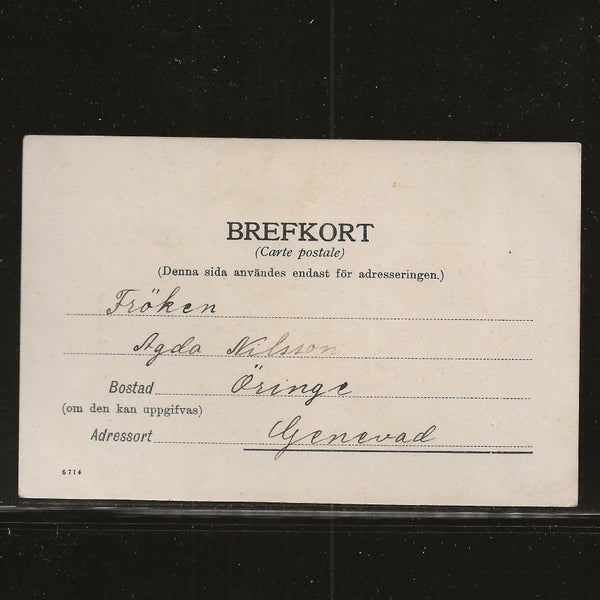 BREFKORT
(Carte postale)
(Denna sida användes endast för adresseringen.)
Fröken
Agda Nilsson
Bostad Öringe
(om den kan uppgifvas)
Adressort Genevad
6714